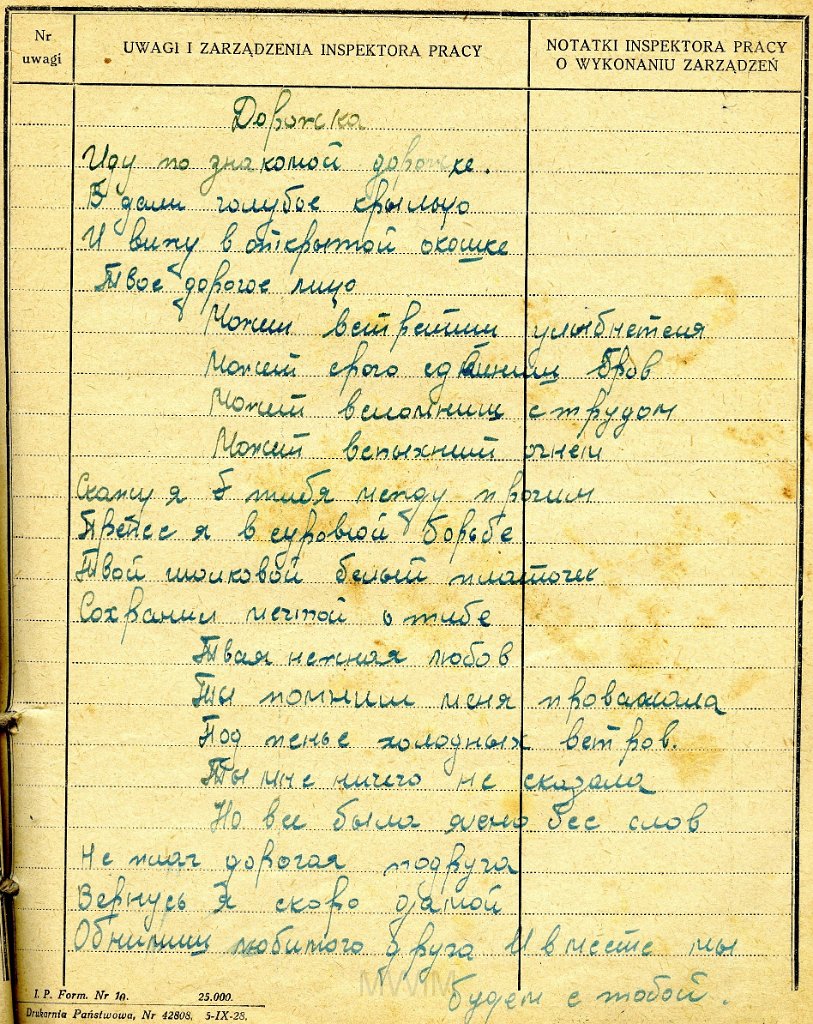 Nr uwagi
UWAGI I ZARZĄDZENIA INSPEKTORA PRACY
NOTATKI INSPEKTORA PRACY
O WYKONANIU ZARZĄDZEŃ
Дорожка
Иду по знакомой дорожке.
В дали голубое крыльцо
И вижу в открытой окошке
Твое дорогое лицо
Может встретиш улыбнетсия
Может срого сдвинищ бров
Может вспомнищ с трудом
Может вспыхний огнем
Скажу я тибя между прочим
Пренес я в суровюй борьбе
Твой шолковой белый платочек
Сохранил мечтой о тибе
Твая нежная любов
Ты помниш меня проважала
Под пенье холодных ветров.
Ты мне ничего не сказала
Но все была ясно бес слов
Не плач дорогая подруга
Вернусь я скоро дамой
Обнимищ любимого друга И вместе мы
будем с тобой.
MWM
I. P. Form. Nr 10. 25.000.
Drukarnia Państwowa, Nr 42808, 5-IX-28.